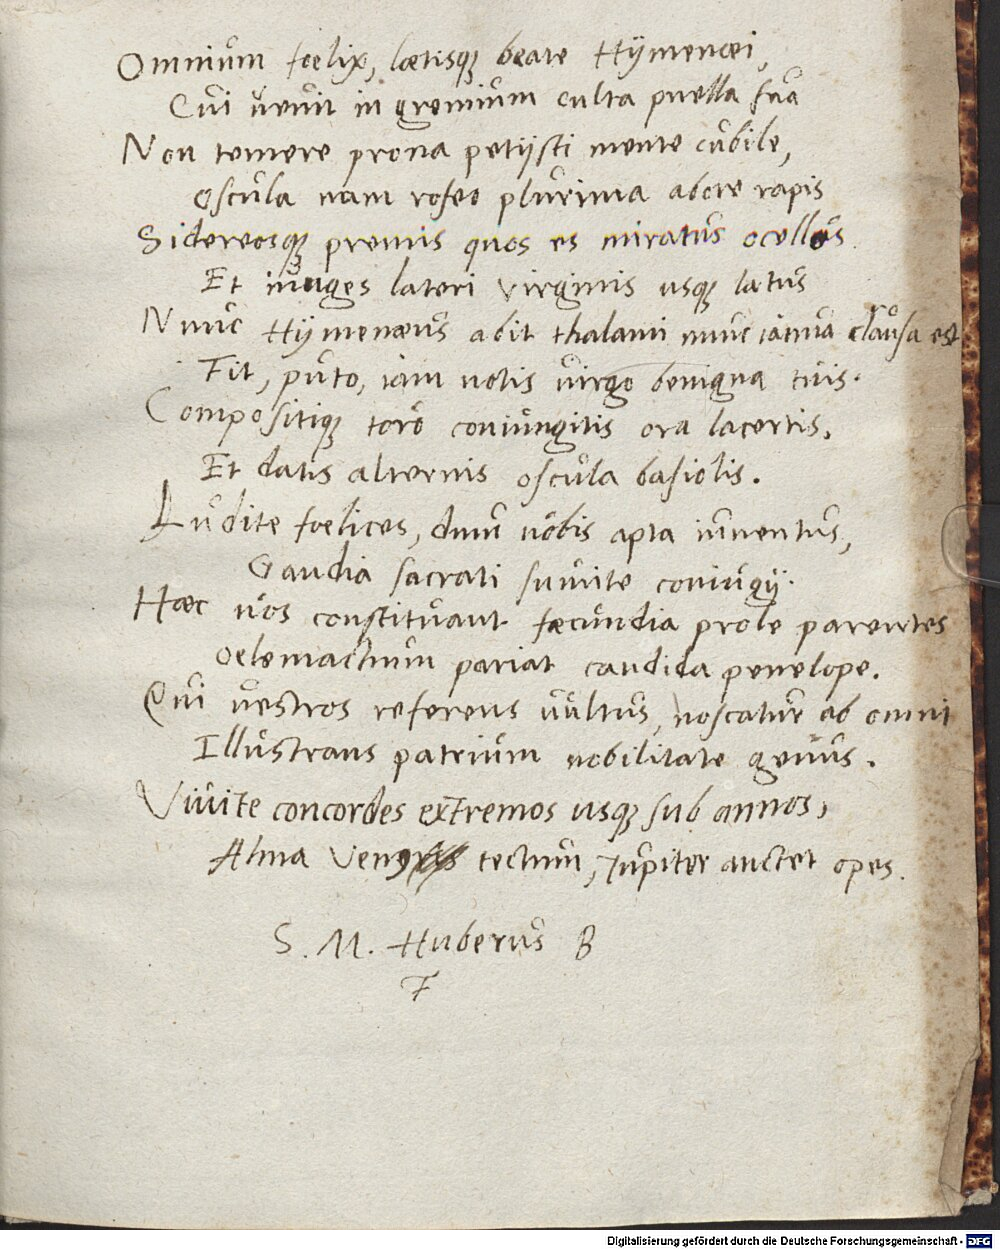 Omnium foelix, lætisq₃ beate Hÿmenæi,
Cui venit in gremium culta puella sua
Non temere prona petijsti mente cubile,
Oscula nam roseo plurima abore rapis
Sidereosq₃ premis quos es miratus ocellos.
Et iunges lateri virginis usq₃ latus
Nunc Hÿmenæus abit thalami nunc ianua clausa est
Fit, puto, iam uotis virgo benigna tuis.
Compositiq₃ toro coniungitis ora lacertis,
Et datis alternis oscula basiolis.
Ludite foelices, dum uobis apta iuuentus,
Gaudia sacrati sumite coniugÿ.
Hæc uos constituant fæcundia prole parentes
pariat candida penelope.
Qui uestros referens uultus, noscatur ab omni
Illustrans patrium nobilitate genus.
Viuite concordes extremos usq₃ sub annos,
Alma tectum, Iupiter auctet opes.
S. M. Huberus B
F
Digitalisierung gefördert durch die Deutsche Forschungsgemeinschaft - DFG